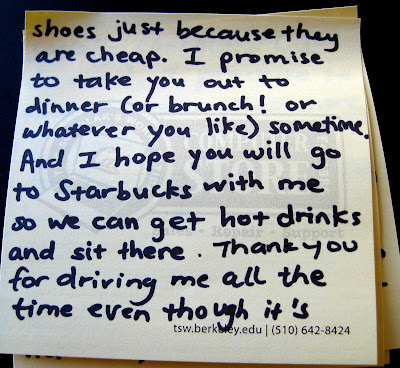 shoes just because they
are cheap. I promise
to take you out to
dinner (or brunch! or
whatever you like) sometime.
And I hope you will go
to Starbucks with me
so we can get hot drinks
and sit there. Thank you
for driving me all the
time even though it's
tsw.berkeley.edu | (510) 642-8424